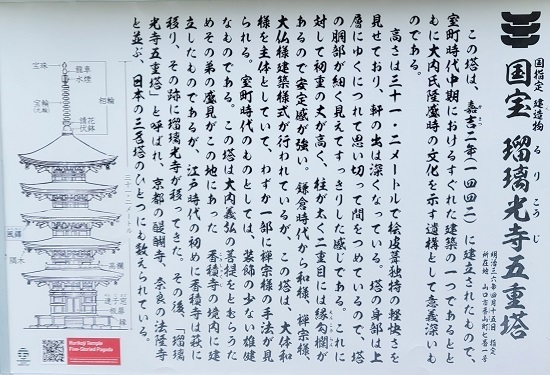 国指定 建造物
国宝 瑠璃光寺五重塔
るりこうじ
明治三六年四月十五日 指定
所在地 山口市香山町七番一号
この塔は、嘉吉二年(一四四二)に建立されたもので、
室町時代中期におけるすぐれた建築の一つであるとと
もに大内氏隆盛時の文化を示す遺構として意義深いも
のである。
高さは三十一・二メートルで桧皮葺独特の軽快さを
見せており、軒の出は深くなっている。塔の身部は上
層にゆくにつれて思い切って間をつめているので、塔
の胴部が細く見えてすっきりした感じである。これに
対して初重の丈が高く、柱が太く二重目には縁勾欄が
あるので安定感が強い。鎌倉時代から和様、禅宗様、
大仏様建築様式が行われているが、この塔は、大体和
様を主体としていて、わずか一部に禅宗様の手法が見
られる。室町時代のものとしては、装飾の少ない雄健
なものである。この塔は大内義弘の菩提をとむらうた
めその弟の盛見がこの地にあった香積寺の境内に建
立したものであるが、江戸時代の初めに香積寺は萩に
移り、その跡に瑠璃光寺が移ってきた。その後、「瑠璃
光寺五重塔」と呼ばれ、京都の醍醐寺、奈良の法隆寺
と並ぶ、日本の三名塔のひとつにも数えられている。
宝珠
竜車
水煙
相輪
宝輪
(九輪)
請花
伏鉢
三十一・二メートル
風鐸
隅木
高欄
連子窓
板扉
縁
Rurikoji Temple
Five-Storied Pagoda